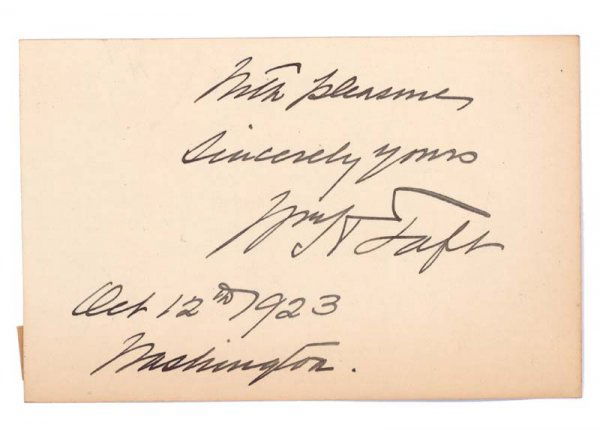 With pleasure
Sincerely yours
Wm H Taft
Oct 12th 1923
Washington.